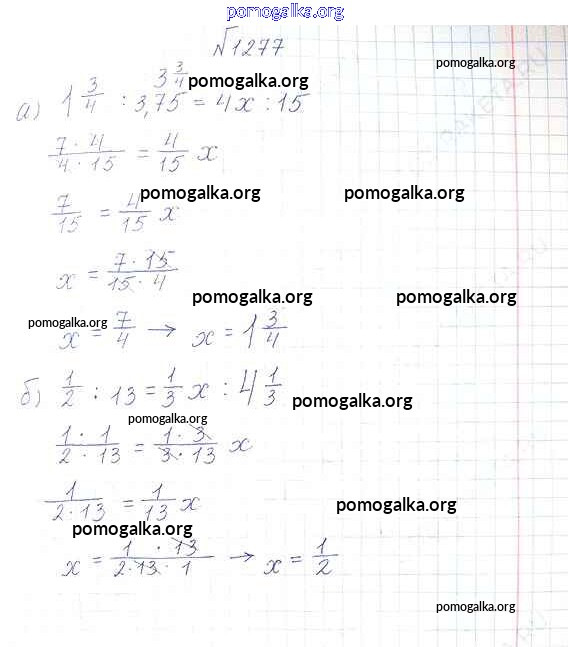 pomogalka.org
№1277
pomogalka.org
3 3/4
pomogalka.org
а) 1 3/4 : 3,75 = 4x : 15
7·4/4·15 = 4/15 x
pomogalka.org pomogalka.org
7/15 = 4/15 x
x = 7·15/15·4
pomogalka.org pomogalka.org
pomogalka.org
x = 7/4 → x = 1 3/4
б) 1/2 : 13 = 1/3 x : 4 1/3
pomogalka.org
pomogalka.org
1·1/2·13 = 1·3/3·13 x
1/2·13 = 1/13 x
pomogalka.org
pomogalka.org
x = 1·13/2·13·1 → x = 1/2
pomogalka.org